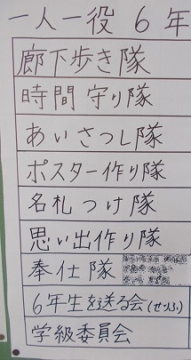 一人一役 6年
廊下歩き隊
時間守り隊
あいさつし隊
ポスター作り隊
名札つけ隊
思い出作り隊
奉仕隊
6年生を送る会(せりふ)
学級委員会